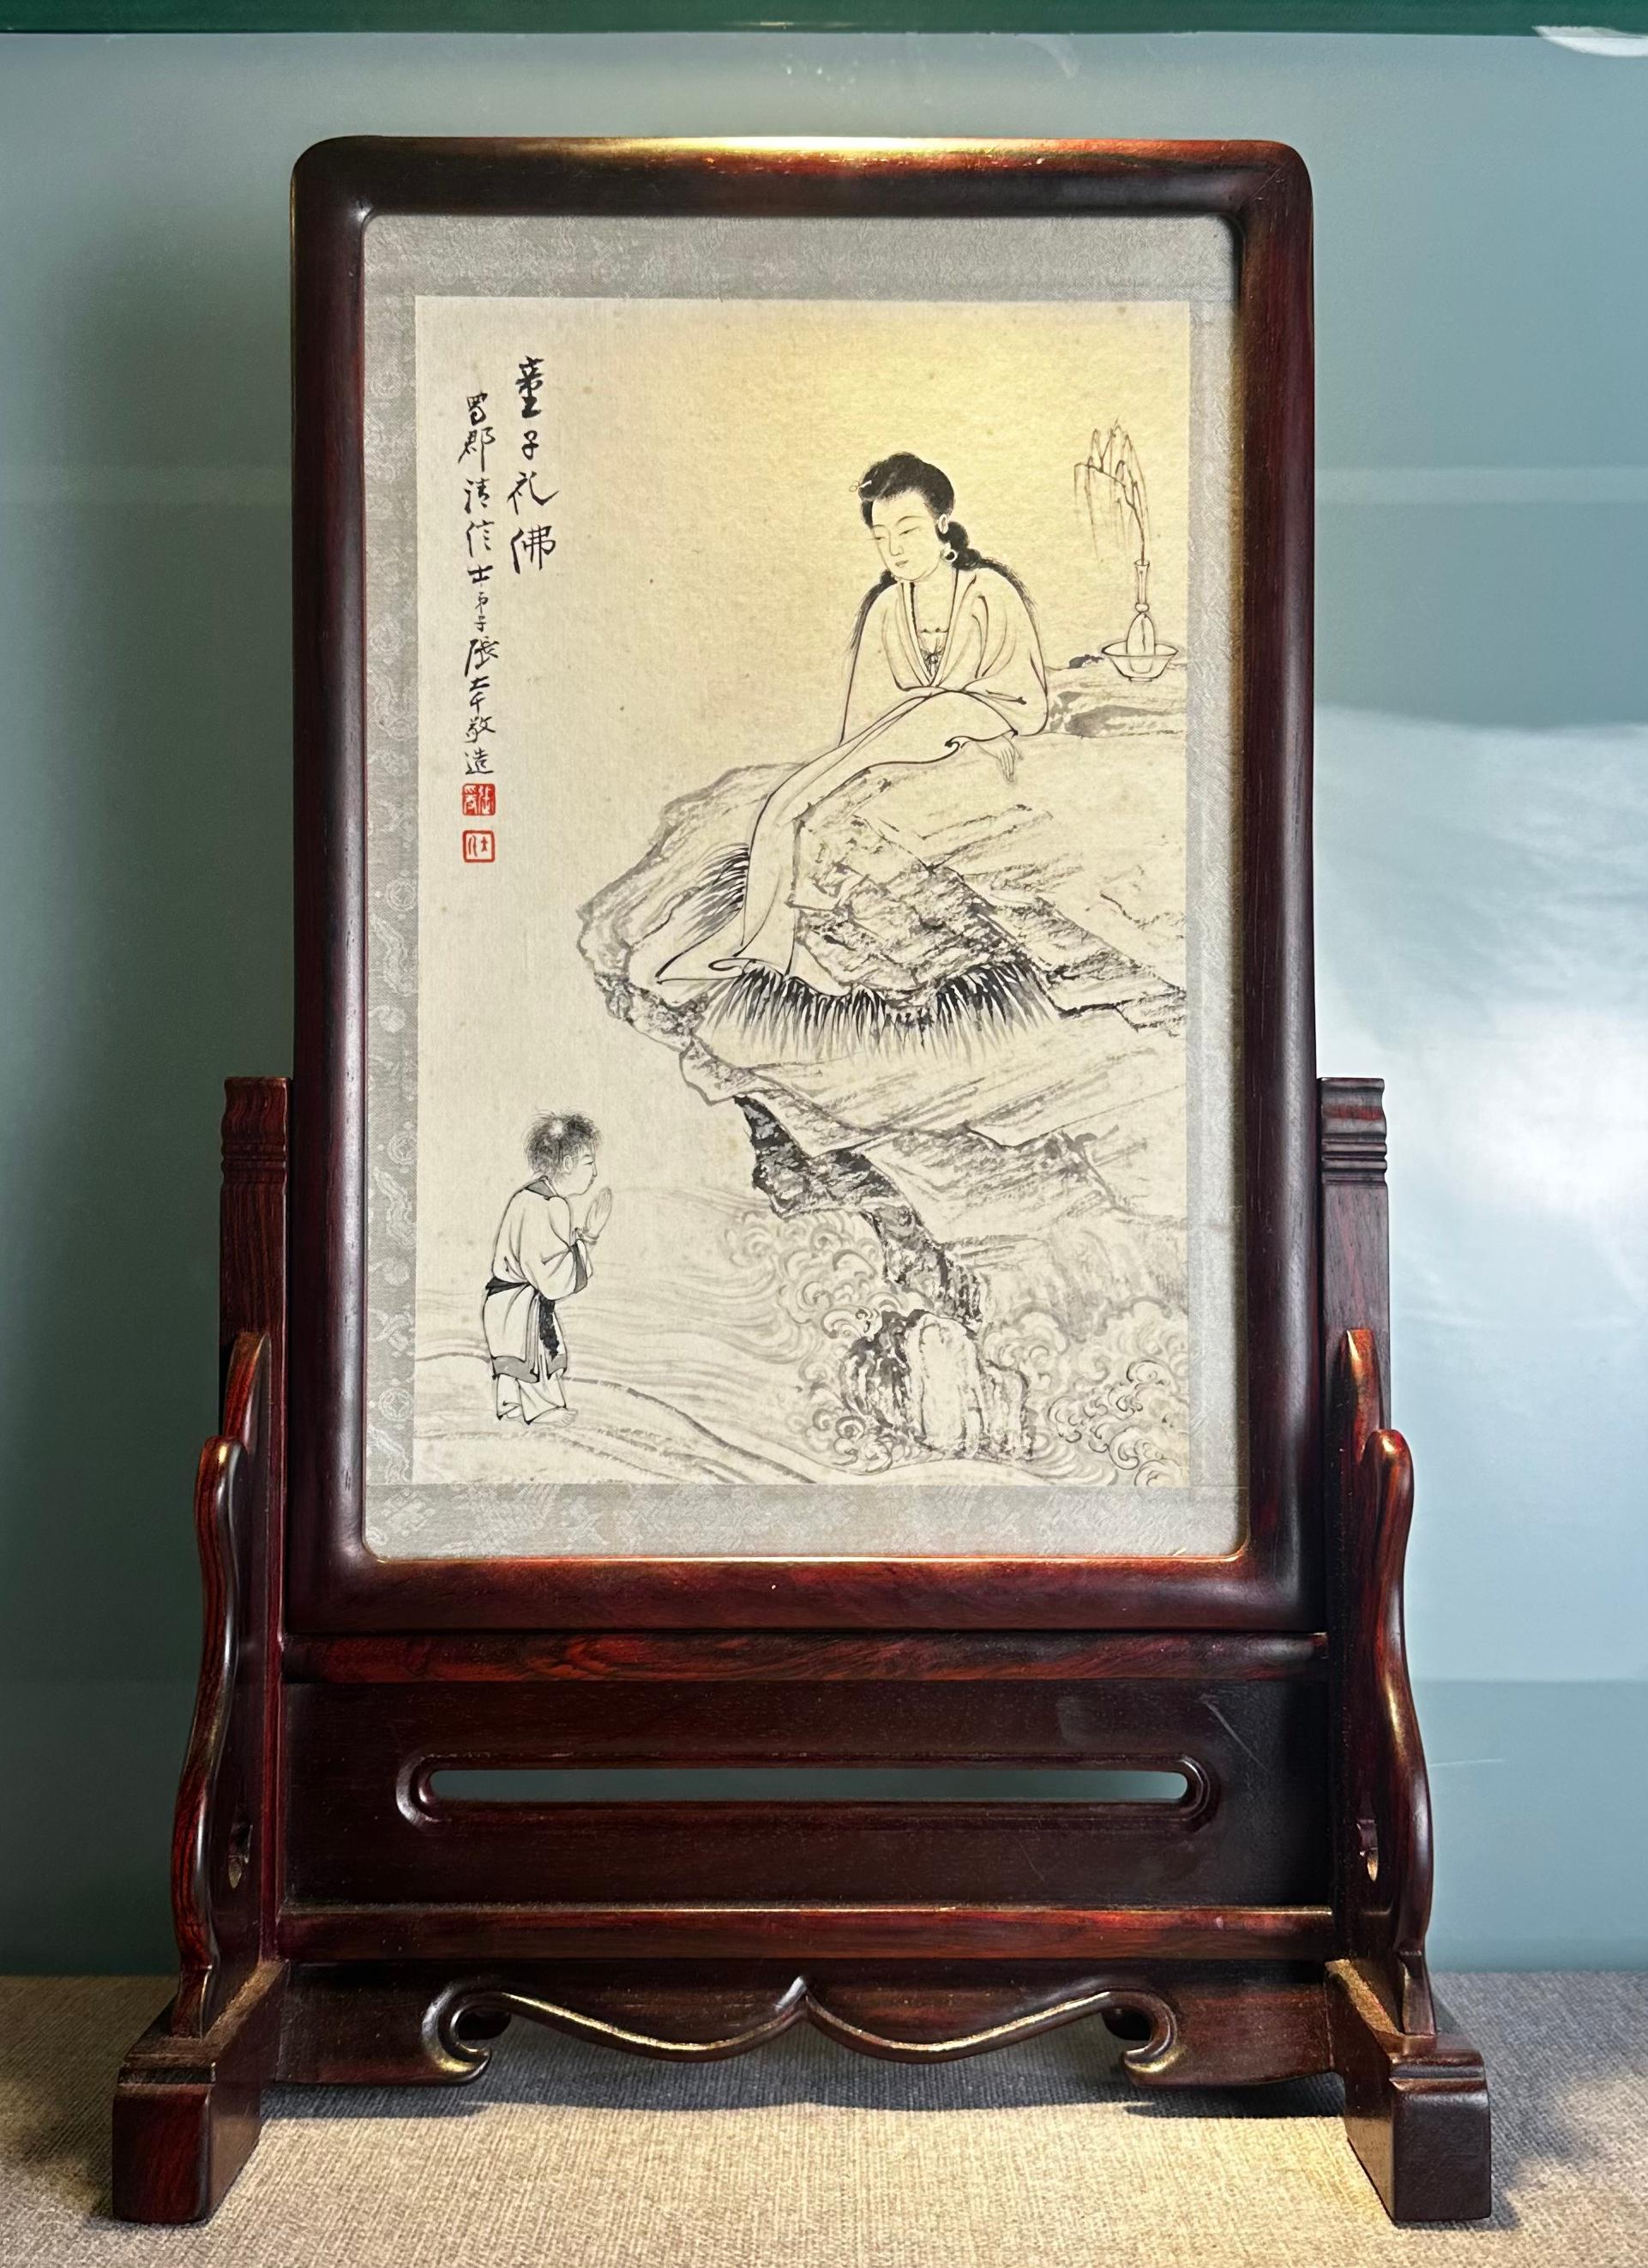 童子礼佛
蜀郡清信士弟子張大千敬造